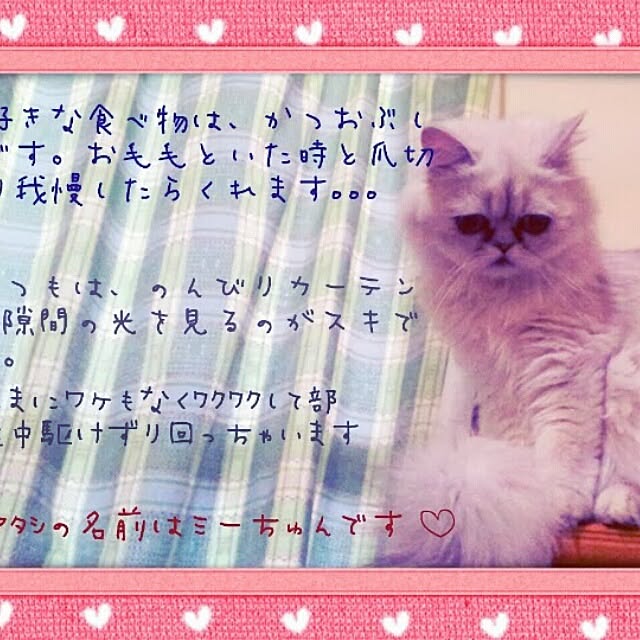 好きな食べ物は、かつおぶし
です。お毛毛といた時と爪切
り我慢したらくれます。。。
つもは、のんびりカーテン
隙間の光を見るのがスキで
。
まにワケもなくワクワクして部
中駆けずり回っちゃいます
タシの名前はミーちゅんです♡